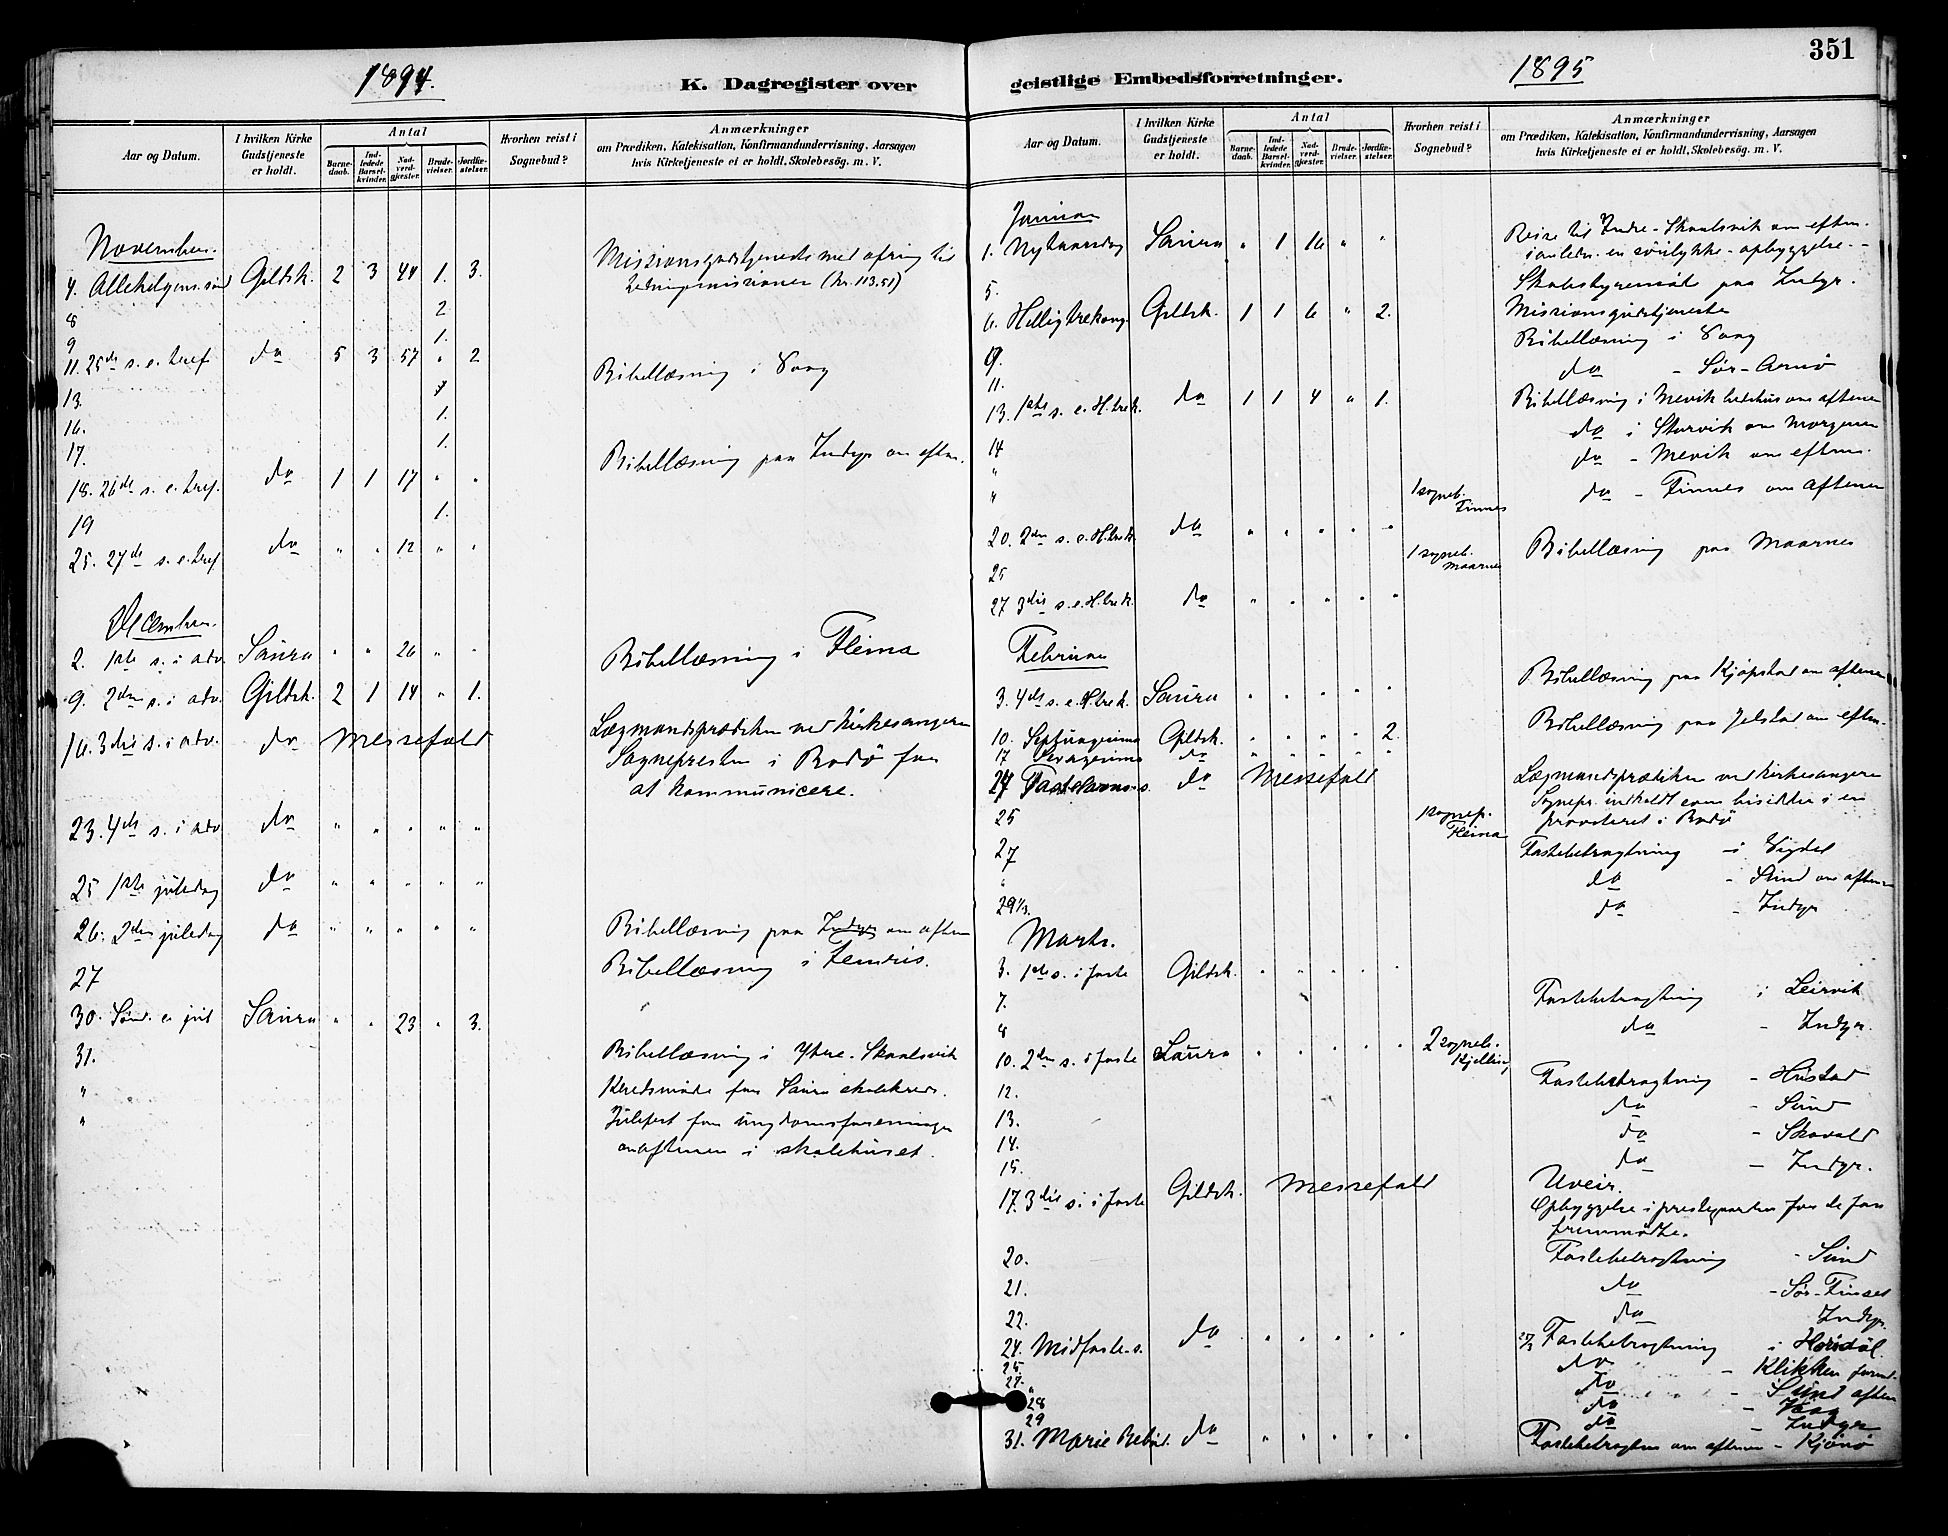 1894.
K. Dagregister over
Aar og Datum.
I hvilken Kirke Gudstjeneste er holdt.
Antal
Barnedaab.
Indledede Barselkvinder.
Nadverdgjæster.
Brudevielser.
Jordfæstelser.
Hvorhen reist i Sognebud?
Anmærkninger
om Prædiken, Katekisation, Konfirmandundervisning, Aarsagen
hvis Kirketjeneste ei er holdt, Skolebesög. m. V.
November.
4. Allehelgens. Gildsk. 2 3 44 1. 3. Missionsgudstjeneste med ofring til
Hedningemissionen (kr. 113,51)
8 2
9 1.
11. 25de s. e. tref. do 5 3 57 " 2 Bibellæsning i Vaag
13. 4
16. 1.
17. 1.
18. 26de s. e. tref. do 1 1 17 " " Bibellæsning paa Indyr om eftm.
19 1.
25. 27de s. e. tref do " " 12 " "
December.
2. 1ste s. i adv. Saura " " 26 " " Bibellæsning i Fleina
9. 2den s. i adv. Gildsk. 2 1 14 " 1.
16. 3die s. i adv. do Messefald Lægmandsprædiken ved kirkesangeren
Sognepresten i Bodö for
at kommunicere.
23. 4de s. i adv do " " " " "
25 1ste juledag do " " " " "
26. 2den juledag do " " " " " Bibellæsning paa Indyr om aften
27 Bibellæsning i
30. Sønd. e. jul Saura " " 23 " 3.
31. Bibellæsning i Ytre-Skaalsvik
" Kredsmøde for Saura skolekreds.
" Julefest for ungdomsforeningen
om aftenen i skolehuset.
351
geistlige Embedsforretninger.
1895
Aar og Datum.
I hvilken Kirke Gudstjeneste er holdt.
Antal
Barnedaab.
Indledede Barselkvinder.
Nadverdgjæster.
Brudevielser.
Jordfæstelser.
Hvorhen reist i Sognebud?
Anmærkninger
om Prædiken, Katekisation, Konfirmandundervisning, Aarsagen
hvis Kirketjeneste ei er holdt, Skolebesög m. V.
Januar
1. Nytaarsdag Saura " 1 16 " " Reise til Indre-Skaalsvik om eftm.
i anledn. en ulykke - opbyggelse.
5. Skolestyremøde paa Indyr.
6. Helligtrekong. Gildsk. 1 1 6 " 2. Missionsgudstjeneste
9. Bibellæsning i Vaag
11. do - Sör-Arnö
13. 1ste s. e. H. trek. do 1 1 4 " 1. Bibellæsning i Mevik bedehus om aftenen
14 do i Storvik om morgenen
" do - Mevik om eftm.
" 1 sogneb. Finnes do - Finnes om aftenen
20. 2den s. e. H. trek. do " " " " "
25 1 sogneb. Maarnes Bibellæsning paa Maarnes
27 3die s. e. H. trek. do " " " " "
Februar
3. 4de s. e. H. trek. Saura " " " " " Bibellæsning paa Kjøpstad om aftenen
10. Septuagesima Gildsk. " " " " 2. Bibellæsning paa Jelstad om eftm.
17 Sexagesima do " " " " "
24 Fastelavns s. do Messefald Lægmandsprædiken ved kirkesangeren
Sognepr. indkaldt som bisidder i en
25 1 sognep. Fleina provsteret i Bodö
27 Fastebetragtning i Vigdel
" do - Sund om aftenen
29 1/3. do - Indyr
Marts.
3. 1ste s. i faste Gildsk. " " " " "
7. Fastebetragtning i Leirvik
8 do - Indyr.
10. 2den s. i faste Saura " " " " " 2 sogneb. Kjelling
12. Fastebetragtning - Hustad
13. do - Sund
14. do - Skavold
15. do - Indyr.
17. 3die s. i faste Gildsk. Messefald Uveir.
Opbyggelse i prestegaarden for de faa
fremmødte.
20. Fastebetragtning - Sund
21. do - Sör-Finset
22. do Indyr.
24. Midfaste s. do " " " " "
25. Fastebetragtning i Horsdal
27. do - Klikken formd.
" do - Sund aften
28 do - Vaag
29 do - Indyr
31. Marie Bebud. do " " " " " Fastebetragtn. om aftenen - Kjönö